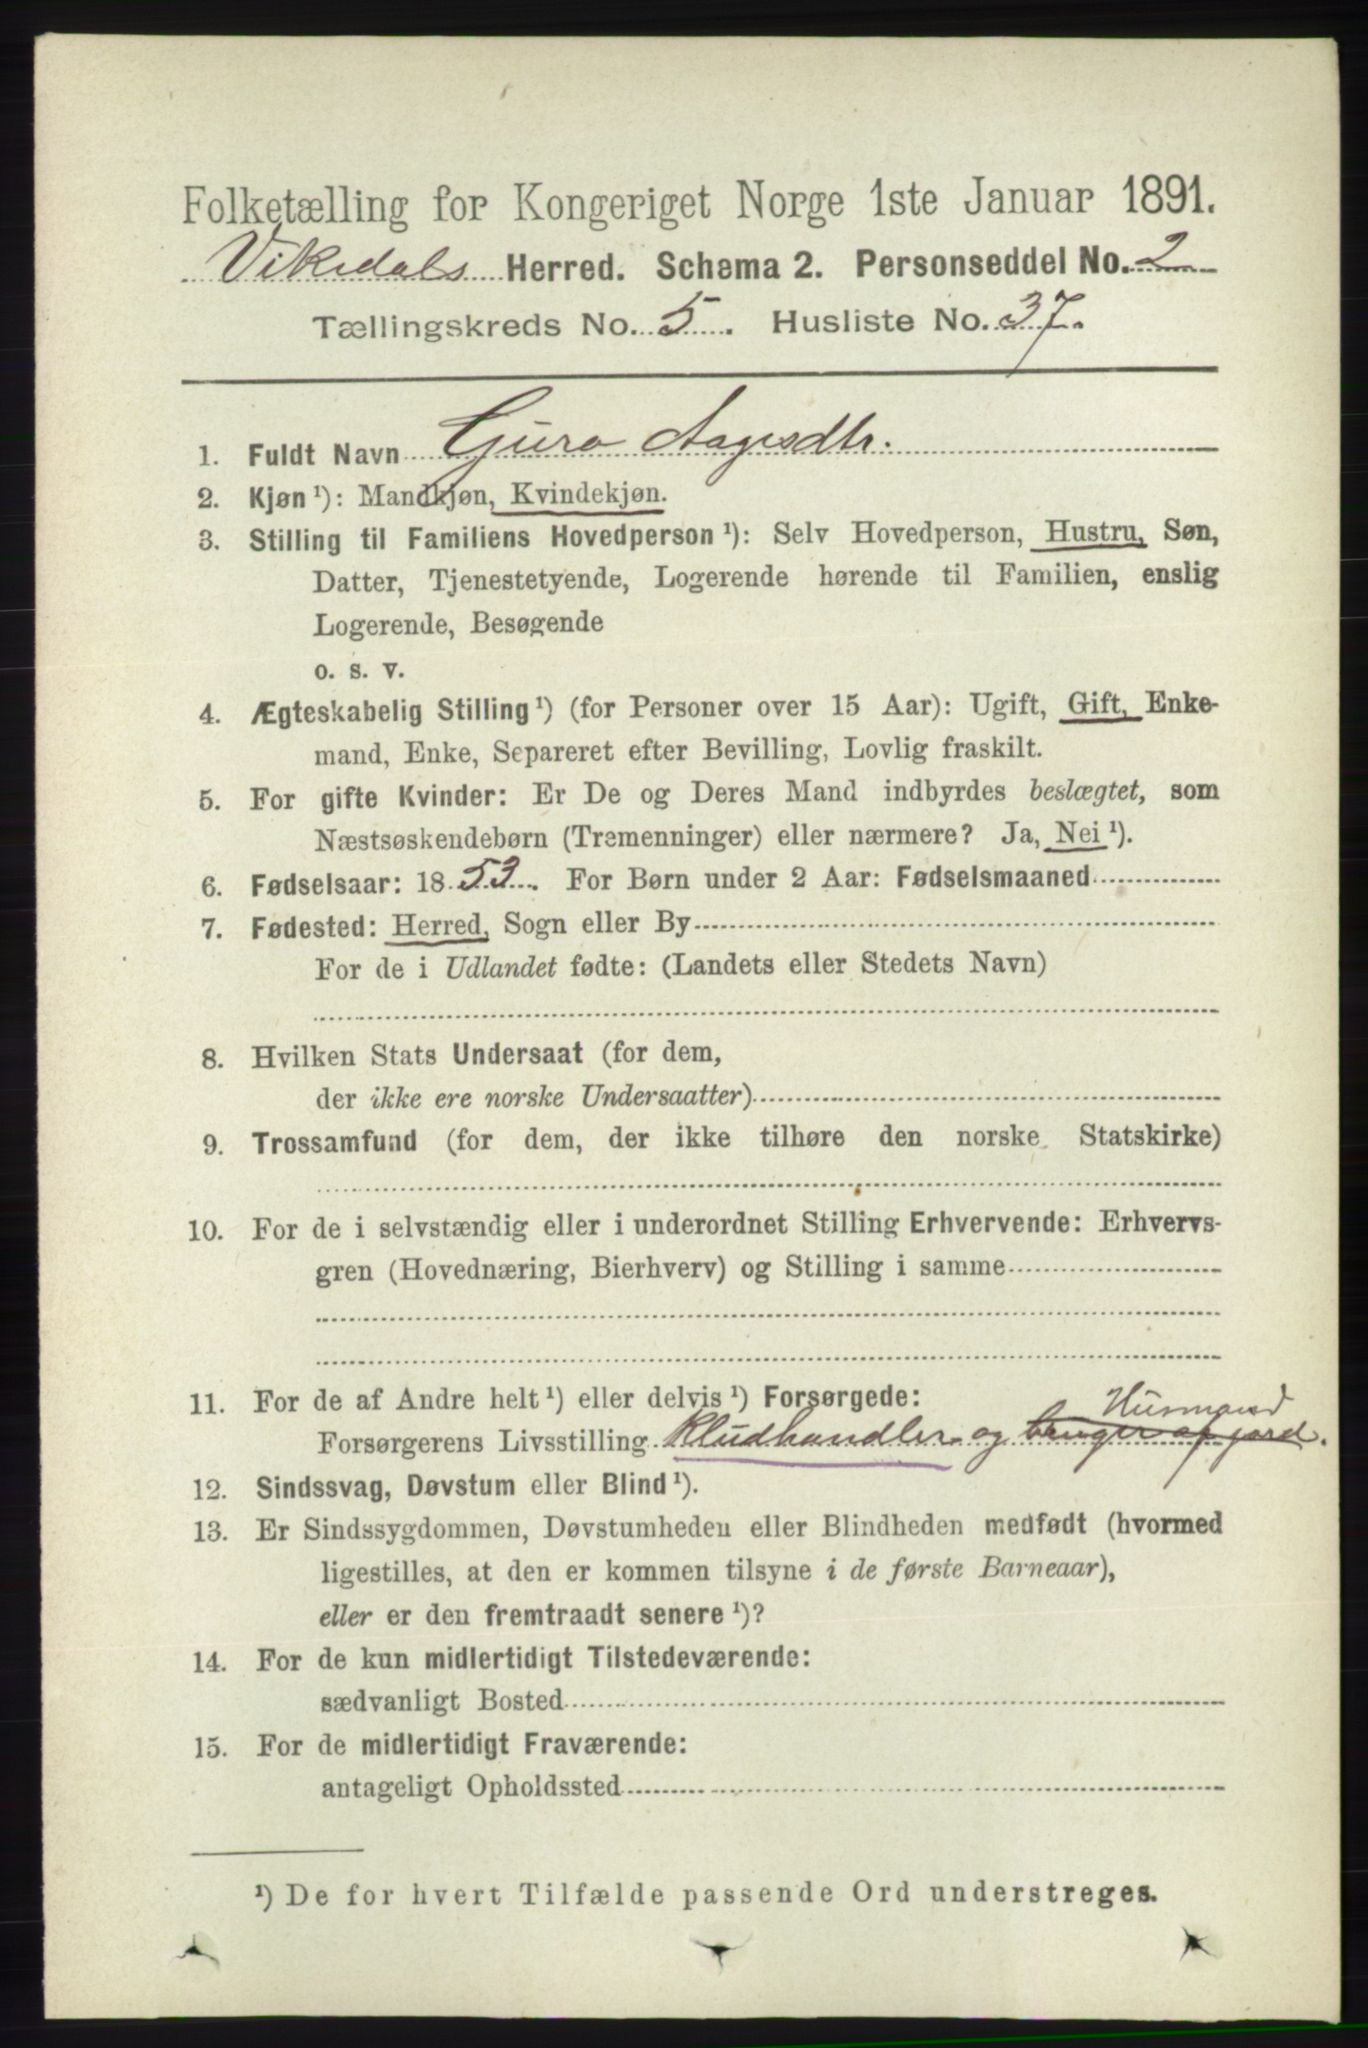 Folketælling for Kongeriget Norge 1ste Januar 1891.
Vikedals Herred. Schema 2. Personseddel No. 2
Tællingskreds No. 5. Husliste No. 37.
1. Fuldt Navn Guro Aagesdtr.
2. Kjøn ¹): Mandkjøn, Kvindekjøn.
3. Stilling til Familiens Hovedperson ¹): Selv Hovedperson, Hustru, Søn,
Datter, Tjenestetyende, Logerende hørende til Familien, enslig
Logerende, Besøgende
o. s. v.
4. Ægteskabelig Stilling ¹) (for Personer over 15 Aar): Ugift, Gift, Enke-
mand, Enke, Separeret efter Bevilling, Lovlig fraskilt.
5. For gifte Kvinder: Er De og Deres Mand indbyrdes beslægtet, som
Næstsøskendebørn (Tremenninger) eller nærmere? Ja, Nei ¹).
6. Fødselsaar: 1853. For Børn under 2 Aar: Fødselsmaaned
7. Fødested: Herred, Sogn eller By
For de i Udlandet fødte: (Landets eller Stedets Navn)
8. Hvilken Stats Undersaat (for dem,
der ikke ere norske Undersaatter)
9. Trossamfund (for dem, der ikke tilhøre den norske Statskirke)
10. For de i selvstændig eller i underordnet Stilling Erhvervende: Erhvervs-
gren (Hovednæring, Bierhverv) og Stilling i samme
11. For de af Andre helt ¹) eller delvis ¹) Forsørgede:
Husmand
Forsørgerens Livsstilling Kludhandler og bruger af jord.
12. Sindssvag, Døvstum eller Blind ¹).
13. Er Sindssygdommen, Døvstumheden eller Blindheden medfødt (hvormed
ligestilles, at den er kommen tilsyne i de første Barneaar),
eller er den fremtraadt senere ¹)?
14. For de kun midlertidigt Tilstedeværende:
sædvanligt Bosted
15. For de midlertidigt Fraværende:
antageligt Opholdssted
¹) De for hvert Tilfælde passende Ord understreges.